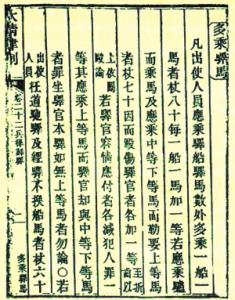 多乘驛馬
凡出使人員應乘驛船驛馬數外多乘一船一
馬者杖八十每一船一馬加一等若應乘驢
而乘馬及應乘中等下等馬而勒要上等馬
者杖七十因而毆傷驛官者各加一等至折傷以
上依鬪毆論若驛官容情應付者各減犯人罪一
等其應乘上等馬而驛官却與中等下等馬
者罪坐驛官本驛如無上等馬者勿論○若
出使人員枉道馳驛及經驛不換船馬者杖六十
大清律例 卷二十二兵律郵驛 多乘驛馬